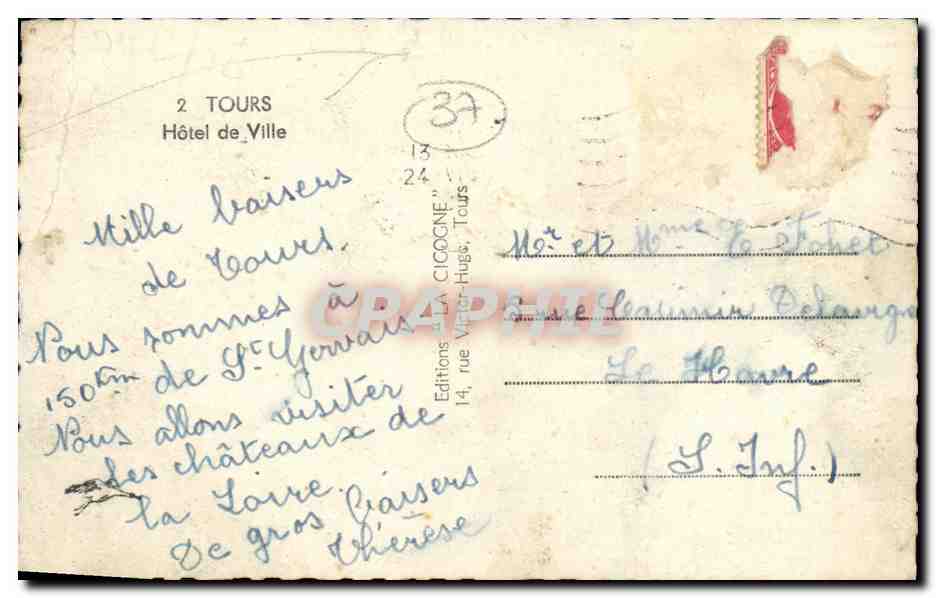 2 TOURS
Hôtel de Ville
37
13
24
Mille baisers
de Tours.
Nous sommes à
150 km de St Gervais
Nous allons visiter
les châteaux de
la Loire.
De gros baisers
Thérèse
Editions "LA CICOGNE"
14, rue Victor-Hugo, Tours
CPAPHIL
Mr et Mme E Fohet
rue Casimir Delavigne
Le Havre
(S. Inf.)